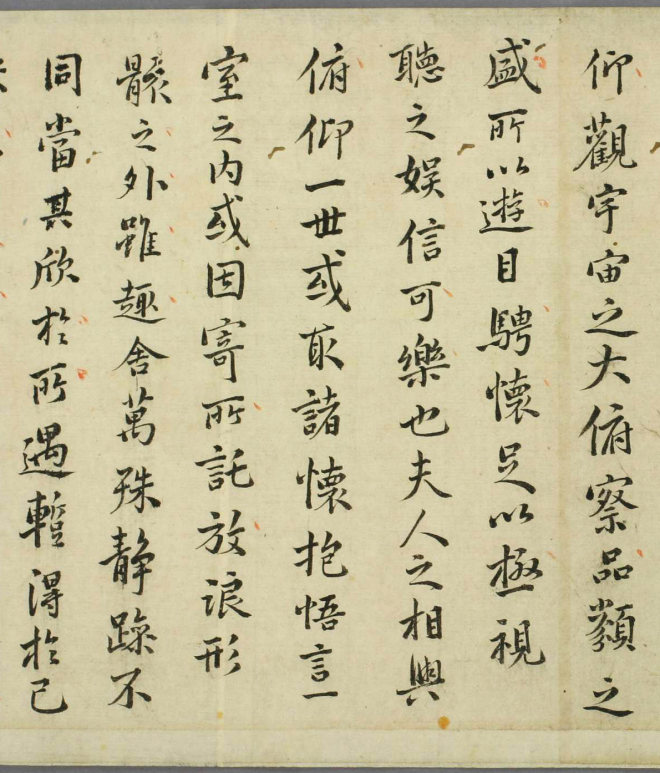 仰觀宇宙之大俯察品類之
盛所以遊目騁懷足以極視
聽之娱信可樂也夫人之相與
俯仰一世或取諸懷抱悟言一
室之内或因寄所託放浪形
骸之外雖趣舍萬殊静躁不
同當其欣於所遇蹔得於己